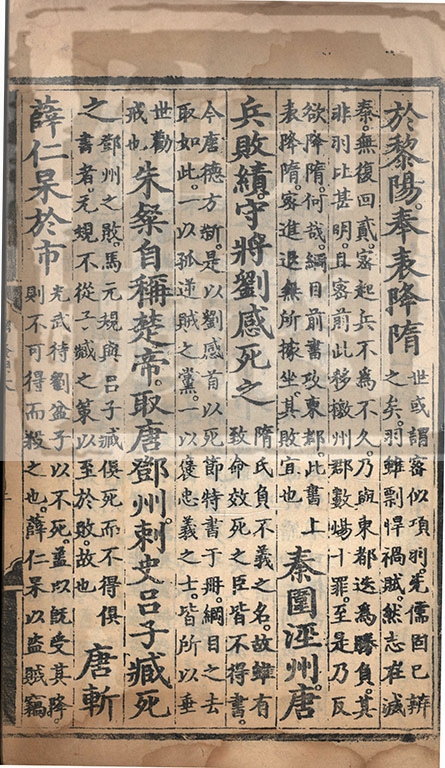 於黎陽。奉表降隋
世或謂密似項羽。先儒固已辨
之矣。羽雖剽悍禍賊。然志在滅
秦。無復回貳。密起兵不為不久。乃與東都迭為勝負。其
非羽比甚明。且密前此移檄州郡數煬十罪。至是乃反
欲降隋。何哉。綱目前書攻東都。此書上
表降隋。密進退無所據。坐其敗宜也
秦圍涇州。唐
兵敗績。守將劉感死之
隋氏負不義之名。故雖有
致命效死之臣皆不得書。
今唐德方新。是以劉感首以死節特書于冊。綱目之去
取如此。一以孤逆賊之黨。一以褒忠義之士。皆所以垂
世勸
戒也
朱粲自稱楚帝。取唐鄧州。刺史呂子臧死
之
鄧州之敗。馬元規與呂子臧俱死而不得俱
書者。元規不從子臧之策以至於敗。故也
唐斬
薛仁杲於市
光武待劉盆子以不死。蓋以既受其降。
則不可得而殺之也。薛仁杲以盜賊竊